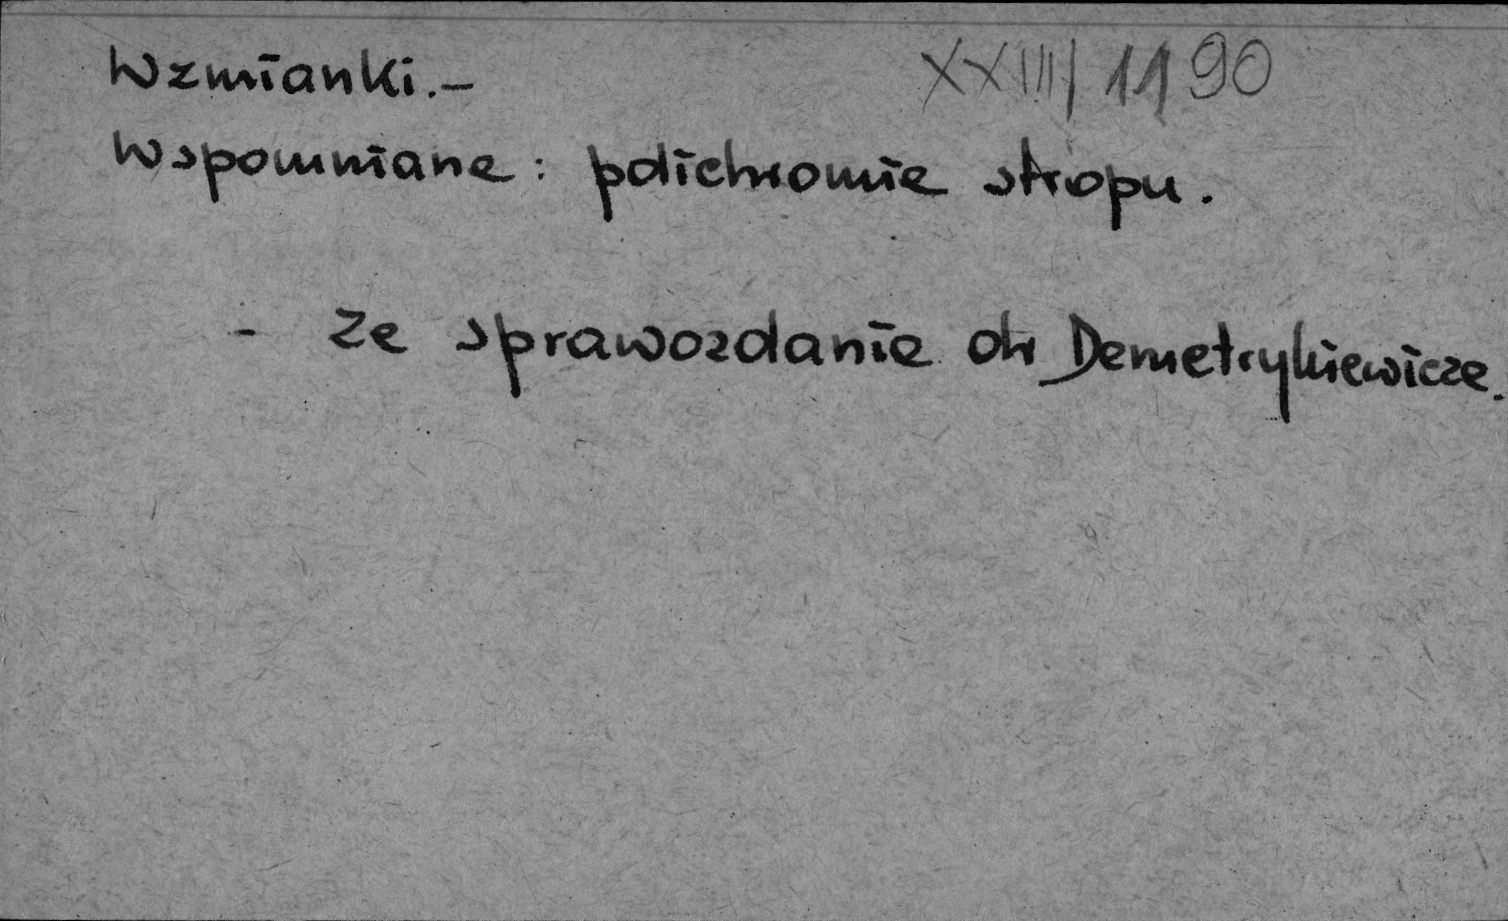 Wzmianki.–
XXIII/1190
Wspomniane: polichromie stropu.
- Ze sprawozdanie dr Demetrykiewicze.